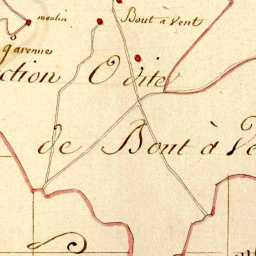 moulin
Bout à Vent
garennes
ction Odite
de Bout à Ve